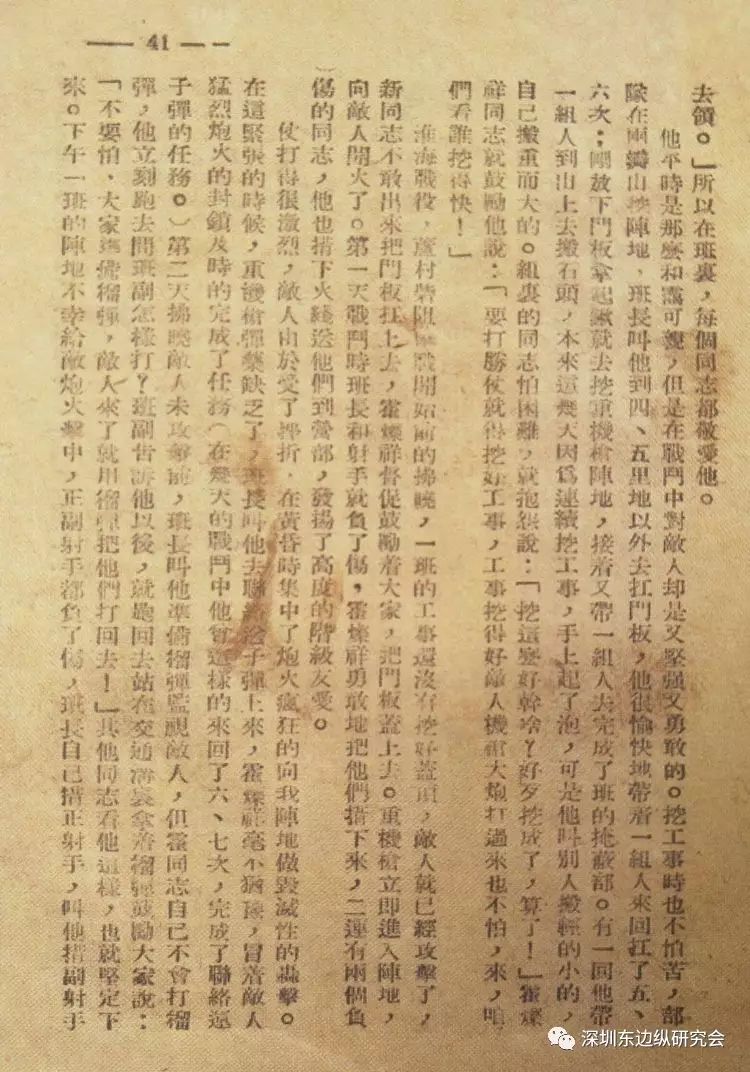 — 41 —
去領。」所以在班裏，每個同志都敬愛他。
他平時是那麼和靄可親，但是在戰鬥中對敵人却是又堅强又勇敢的。挖工事時也不怕苦，部
隊在兩瓣山挖陣地，班長叫他到四、五里地以外去扛門板，他很愉快地帶着一組人來回扛了五、
六次；剛放下門板拿起鍬就去挖重機槍陣地，接着又帶一組人去完成了班的掩蔽部。有一回他帶
一組人到山上去搬石頭，本來這幾天因爲連續挖工事，手上起了泡，可是他叫別人搬輕的小的，
自己搬重而大的。組裏的同志怕困難，就抱怨說：「挖這麼好幹啥？好歹挖成了，算了！」霍燦
祥同志就鼓勵他說：「要打勝仗就得挖好工事，工事挖得好敵人機槍大炮打過來也不怕，來，咱
們看誰挖得快！」
淮海戰役，蘆村砦阻 戰開始前的拂曉，一班的工事還沒有挖好蓋頂，敵人就已經攻擊了，
新同志不敢出來把門板扛上去，霍燦祥督促鼓勵着大家，把門板蓋上去。重機槍立即進入陣地，
向敵人開火了。第一天戰鬥時班長和射手就負了傷，霍燦祥勇敢地把他們揹下來，二連有兩個負
傷的同志，他也揹下火綫送他們到營部，發揚了高度的階級友愛。
仗打得很激烈，敵人由於受了挫折，在黃昏時集中了炮火瘋狂的向我陣地做毀滅性的轟擊。
在這緊張的時候，重機槍彈藥缺乏了，班長叫他去聯絡送子彈上來，霍燦祥毫不猶豫，冒着敵人
猛烈炮火的封鎖及時的完成了任務（在幾天的戰鬥中他曾這樣的來回了六、七次，完成了聯絡運
子彈的任務。）第二天拂曉敵人未攻擊前，班長叫他準備榴彈監視敵人，但霍同志自己不會打榴
彈，他立刻跑去問班副怎樣打？班副告訴他以後，就跑回去站在交通溝裏拿着榴彈鼓勵大家說：
「不要怕，大家準備榴彈，敵人來了就用榴彈把他們打回去！」其他同志看他這樣，也就堅定下
來。下午一班的陣地不幸給敵炮火擊中，正副射手都負了傷，班長自己揹正射手，叫他揹副射手
深圳东边纵研究会